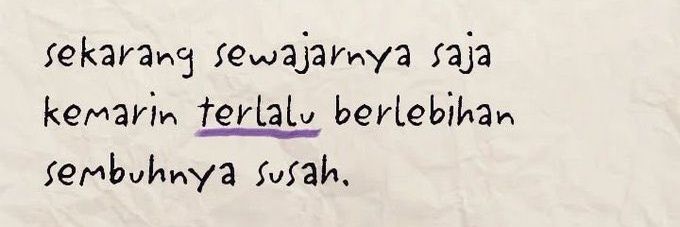 sekarang sewajarnya saja
kemarin terlalu berlebihan
sembuhnya susah.